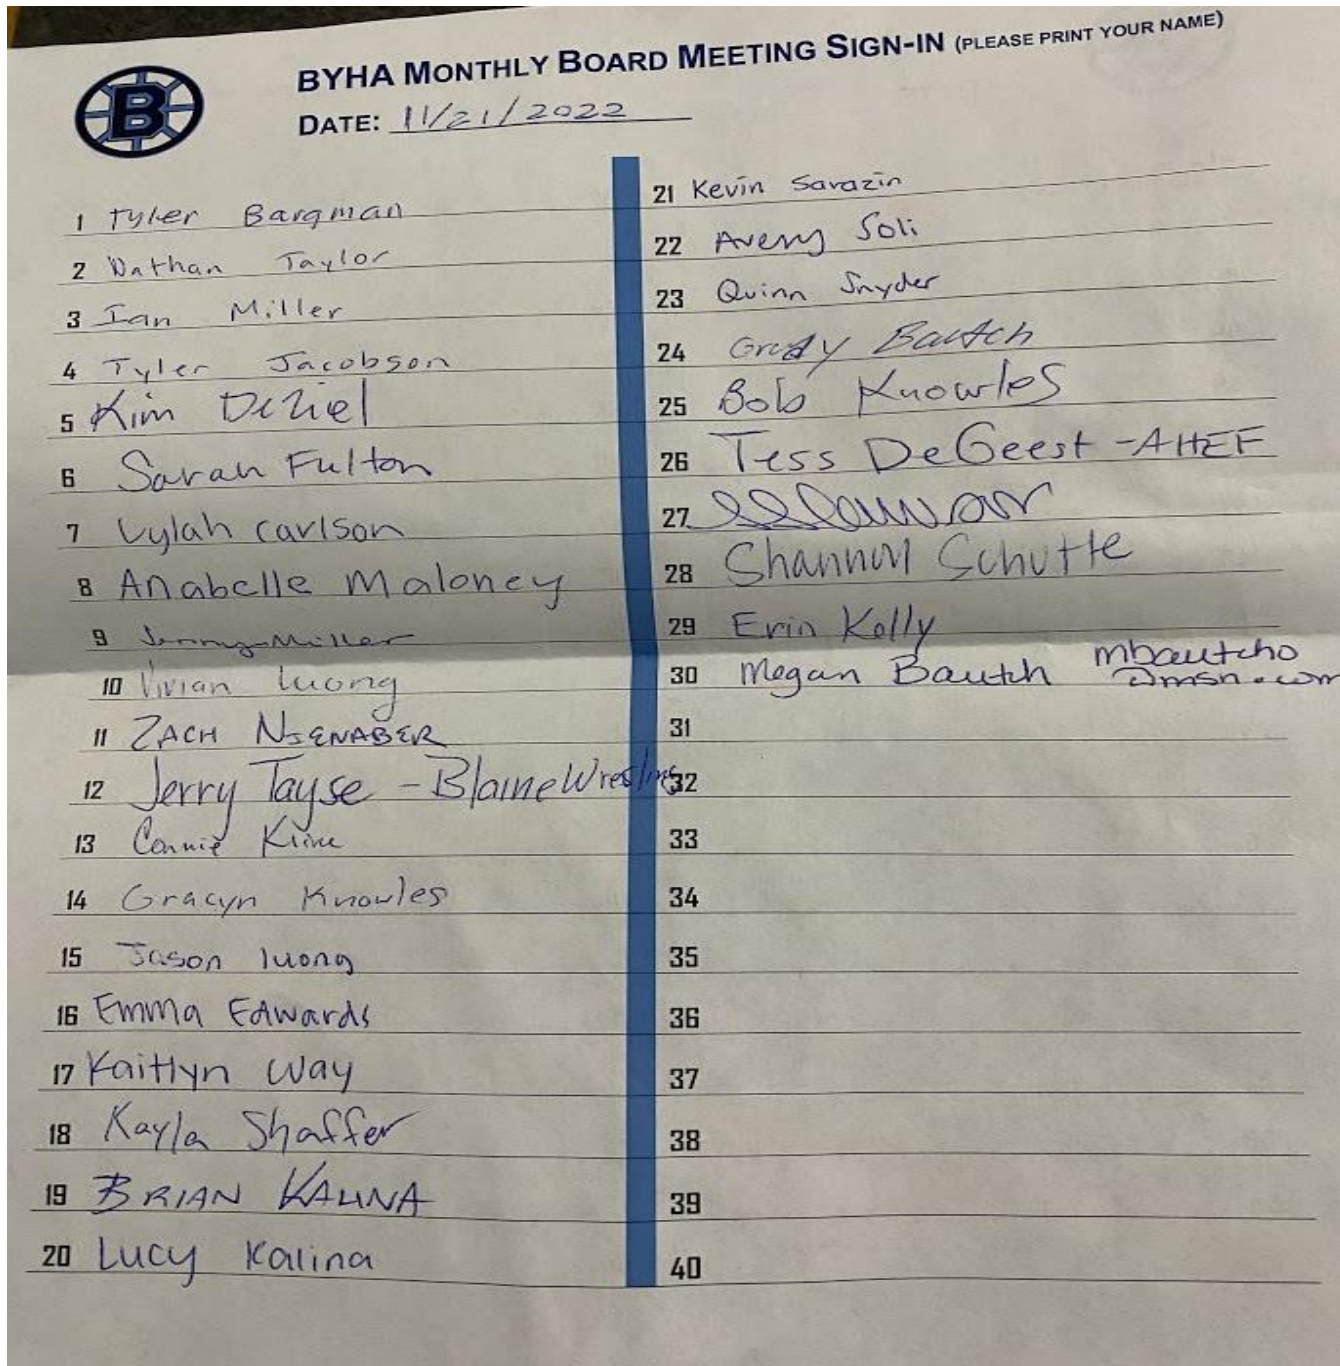 BYHA MONTHLY BOARD MEETING SIGN-IN (PLEASE PRINT YOUR NAME)
B
DATE: 11/21/2022
1 Tyler Bargman
2 Nathan Taylor
3 Ian Miller
4 Tyler Jacobson
5 Kim Deziel
6 Sarah Fulton
7 Lylah Carlson
8 Anabelle Maloney
9 Jenny Miller
10 Vivian Luong
11 ZACH NIENABER
12 Jerry Tayse - Blaine Wrestling
13 Connie Kline
14 Gracyn Knowles
15 Jason luong
16 Emma Edwards
17 Kaitlyn Way
18 Kayla Shaffer
19 BRIAN KALINA
20 Lucy Kalina
21 Kevin Sarazin
22 Avery Soli
23 Quinn Snyder
24 Grady Bautch
25 Bob Knowles
26 Tess DeGeest - AHEF
27
28 Shannon Schutte
29 Erin Kelly
30 Megan Bautch mbautcho
@msn.com
31
32
33
34
35
36
37
38
39
40